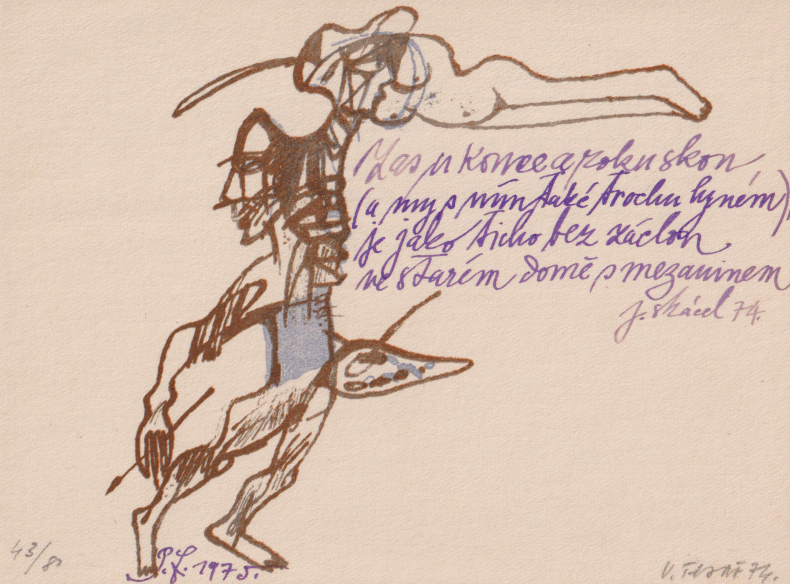 Zas u konce a roku skon
(a my s ním také trochu hynem)
je jako ticho bez záclon
ve starém domě s mezaninem
J. Skácel 74.
43/80
P.F. 1975.
V. 74.